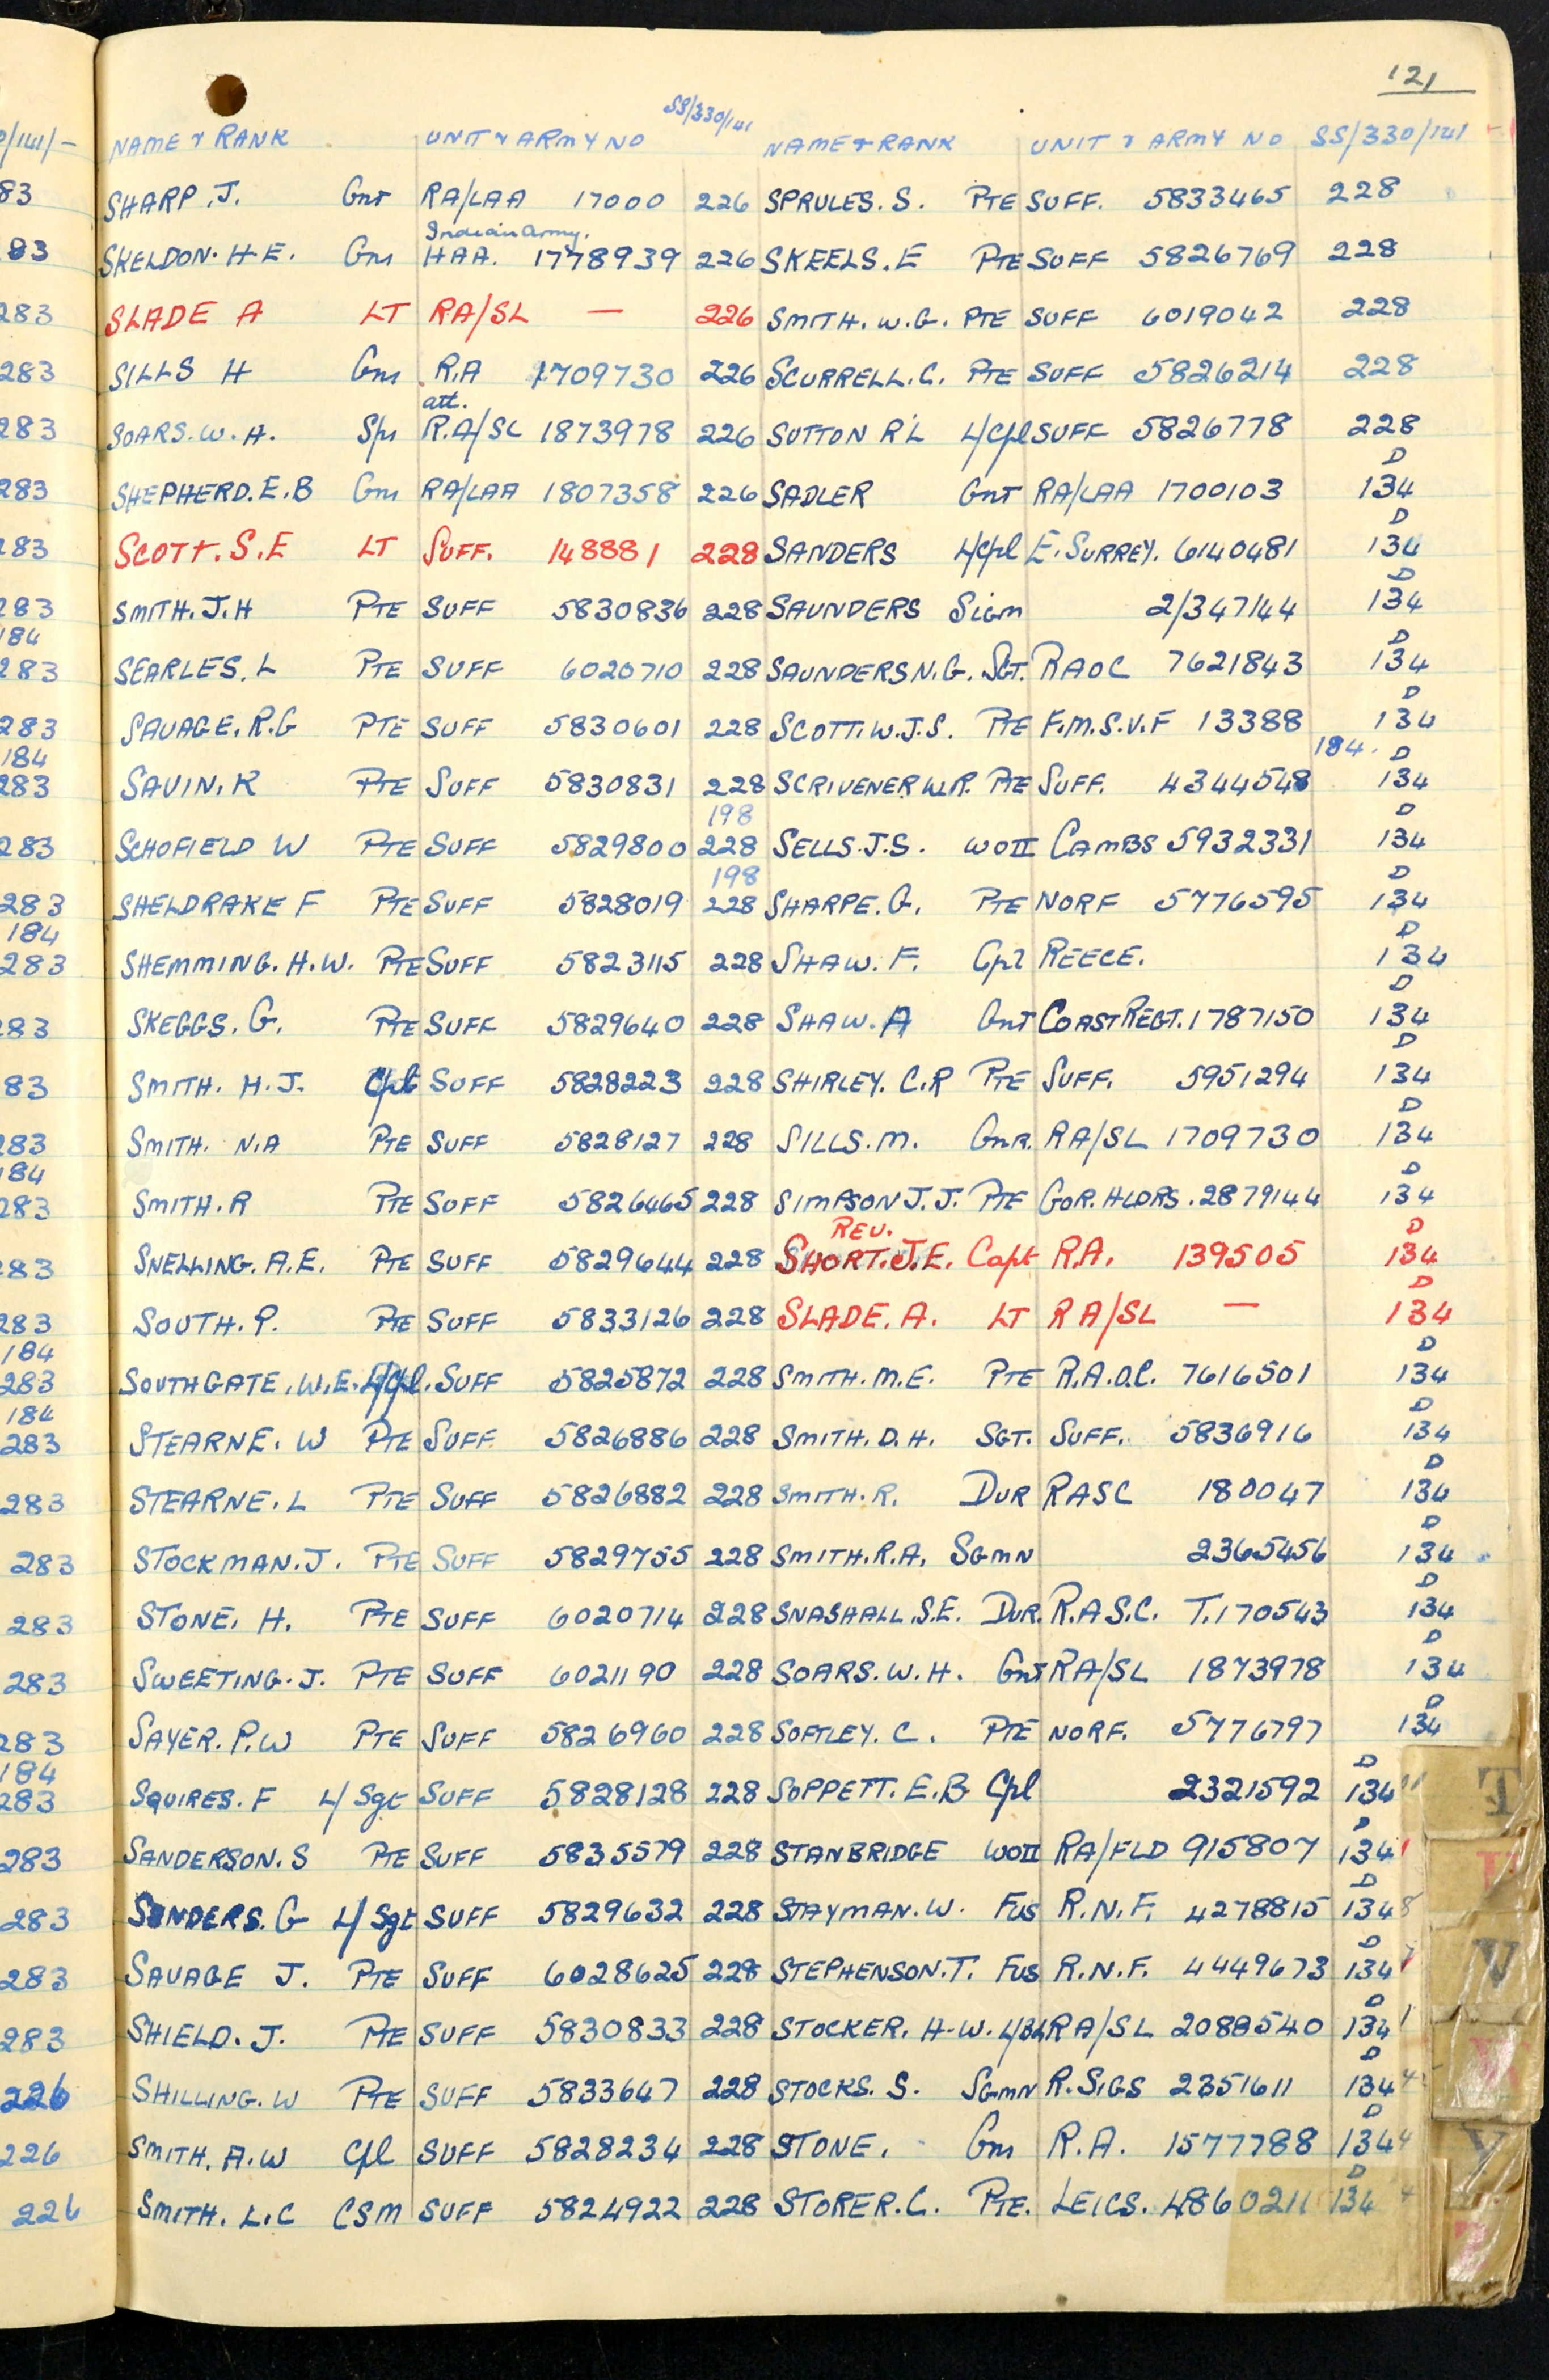 121
NAME & RANK UNIT & ARMY NO SS/330/141 NAME & RANK UNIT & ARMY NO SS/330/141
SHARP. J. Gnr RA/LAA 17000 226 SPRULES. S. PTE SUFF. 5833465 228
Indian Army.
SKELDON. H.E. Gnr HAA. 1778939 226 SKEELS. E PTE SUFF 5826769 228
SLADE A LT RA/SL — 226 SMITH. W.G. PTE SUFF 6019042 228
SILLS H Gnr R.A 1709730 226 SCURRELL. C. PTE SUFF 5826214 228
att.
SOARS. W. H. Spr R.A/SL 1873978 226 SUTTON R L L/Cpl SUFF 5826778 228
D
SHEPHERD. E.B Gnr RA/LAA 1807358 226 SADLER Gnr RA/LAA 1700103 134
D
SCOTT. S.E LT SUFF. 148881 228 SANDERS L/Cpl E. SURREY. 6140481 134
D
SMITH. J. H PTE SUFF 5830836 228 SAUNDERS Sigm 2/347144 134
D
SEARLES. L PTE SUFF 6020710 228 SAUNDERS N.G. SGT. RAOC 7621843 134
D
SAVAGE. R.G PTE SUFF 5830601 228 SCOTT. W.J.S. PTE F.M.S.V.F 13388 134
184. D
SAVIN. K PTE SUFF 5830831 228 SCRIVENER W.R. PTE SUFF. 4344548 134
198 D
SCHOFIELD W PTE SUFF 5829800 228 SELLS. J.S. WOII CAMBS 5932331 134
198 D
SHELDRAKE F PTE SUFF 5828019 228 SHARPE. G. PTE NORF 5776595 134
D
SHEMMING. H.W. PTE SUFF 5823115 228 SHAW. F. Cpl REECE. 134
D
SKEGGS. G. PTE SUFF 5829640 228 SHAW. A Gnr COAST REGT. 1787150 134
D
SMITH. H. J. Cpl SUFF 5828223 228 SHIRLEY. C.R PTE SUFF. 5951294 134
D
SMITH. N.A PTE SUFF 5828127 228 SILLS. M. Gnr. RA/SL 1709730 134
D
SMITH. R PTE SUFF 5826465 228 SIMPSON J. J. PTE GOR. HLDRS. 2879144 134
REV. D
SNELLING. A.E. PTE SUFF 5829644 228 SHORT. J.E. Capt R.A. 139505 134
D
SOUTH. P. PTE SUFF 5833126 228 SLADE. A. LT RA/SL — 134
D
SOUTHGATE. W.E. L/Cpl. SUFF 5825872 228 SMITH. M.E. PTE R.A.O.C. 7616501 134
D
STEARNE. W PTE SUFF 5826886 228 SMITH. D. H. SGT. SUFF. 5836916 134
D
STEARNE. L PTE SUFF 5826882 228 SMITH. R. DVR RASC 180047 134
D
STOCKMAN. J. PTE SUFF 5829755 228 SMITH. R.A. SGMN 2365456 134
D
STONE. H. PTE SUFF 6020714 228 SNASHALL. S.E. DVR. R.A.S.C. T.170543 134
D
SWEETING. J. PTE SUFF 6021190 228 SOARS. W. H. Gnr RA/SL 1873978 134
D
SAYER. P.W PTE SUFF 5826960 228 SOFTLEY. C. PTE NORF. 5776797 134
D
SQUIRES. F L/Sgt SUFF 5828128 228 SOPPETT. E.B Cpl 2321592 134
D
SANDERSON. S PTE SUFF 5835579 228 STANBRIDGE WOII RA/FLD 915807 134
D
SANDERS. G L/Sgt SUFF 5829632 228 STAYMAN. W. FUS R.N.F. 4278815 134
D
SAVAGE J. PTE SUFF 6028625 228 STEPHENSON. T. FUS R.N.F. 4449673 134
D
SHIELD. J. PTE SUFF 5830833 228 STOCKER. H.W. L/Bdr RA/SL 2088540 134
D
SHILLING. W PTE SUFF 5833647 228 STOCKS. S. SGMN R. SIGS 2351611 134
D
SMITH. A.W Cpl SUFF 5828234 228 STONE. Gnr R.A. 1577788 134
D
SMITH. L.C CSM SUFF 5824922 228 STORER. C. PTE. LEICS. 4860211 134